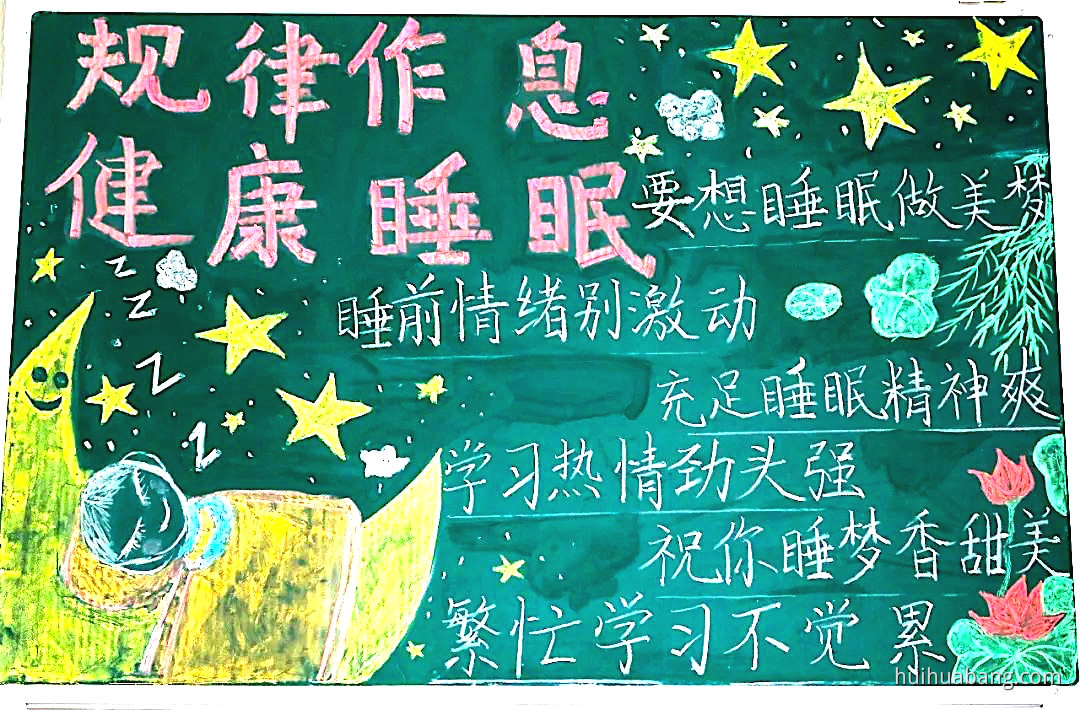 规律作息
健康睡眠
要想睡眠做美梦
睡前情绪别激动
充足睡眠精神爽
学习热情劲头强
祝你睡梦香甜美
繁忙学习不觉累
Z
Z
Z
Z
huihuabang.com